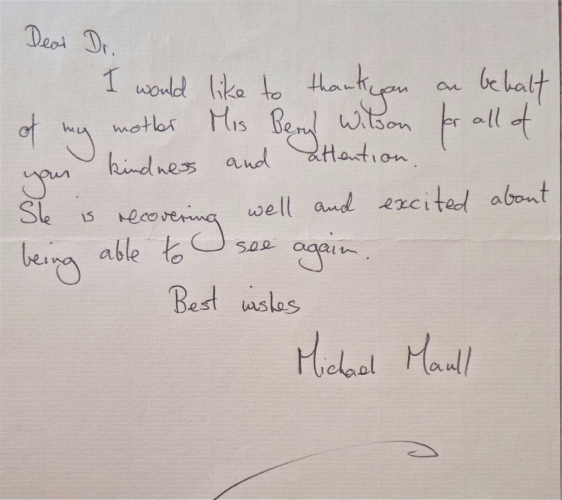 Dear Dr.
I would like to thankyou on behalf
of my mother Mrs Beryl Wilson for all of
your kindness and attention.
She is recovering well and excited about
being able to see again.
Best wishes
Michael Maull